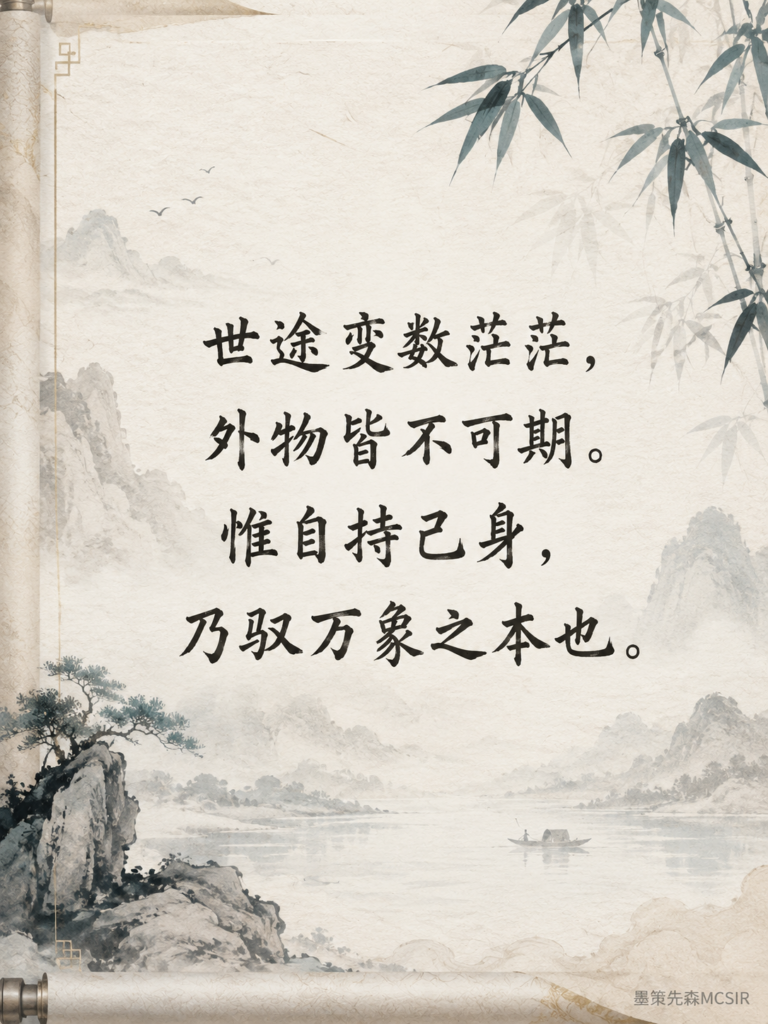 世途变数茫茫，
外物皆不可期。
惟自持己身，
乃驭万象之本也。
墨策先森MCSIR